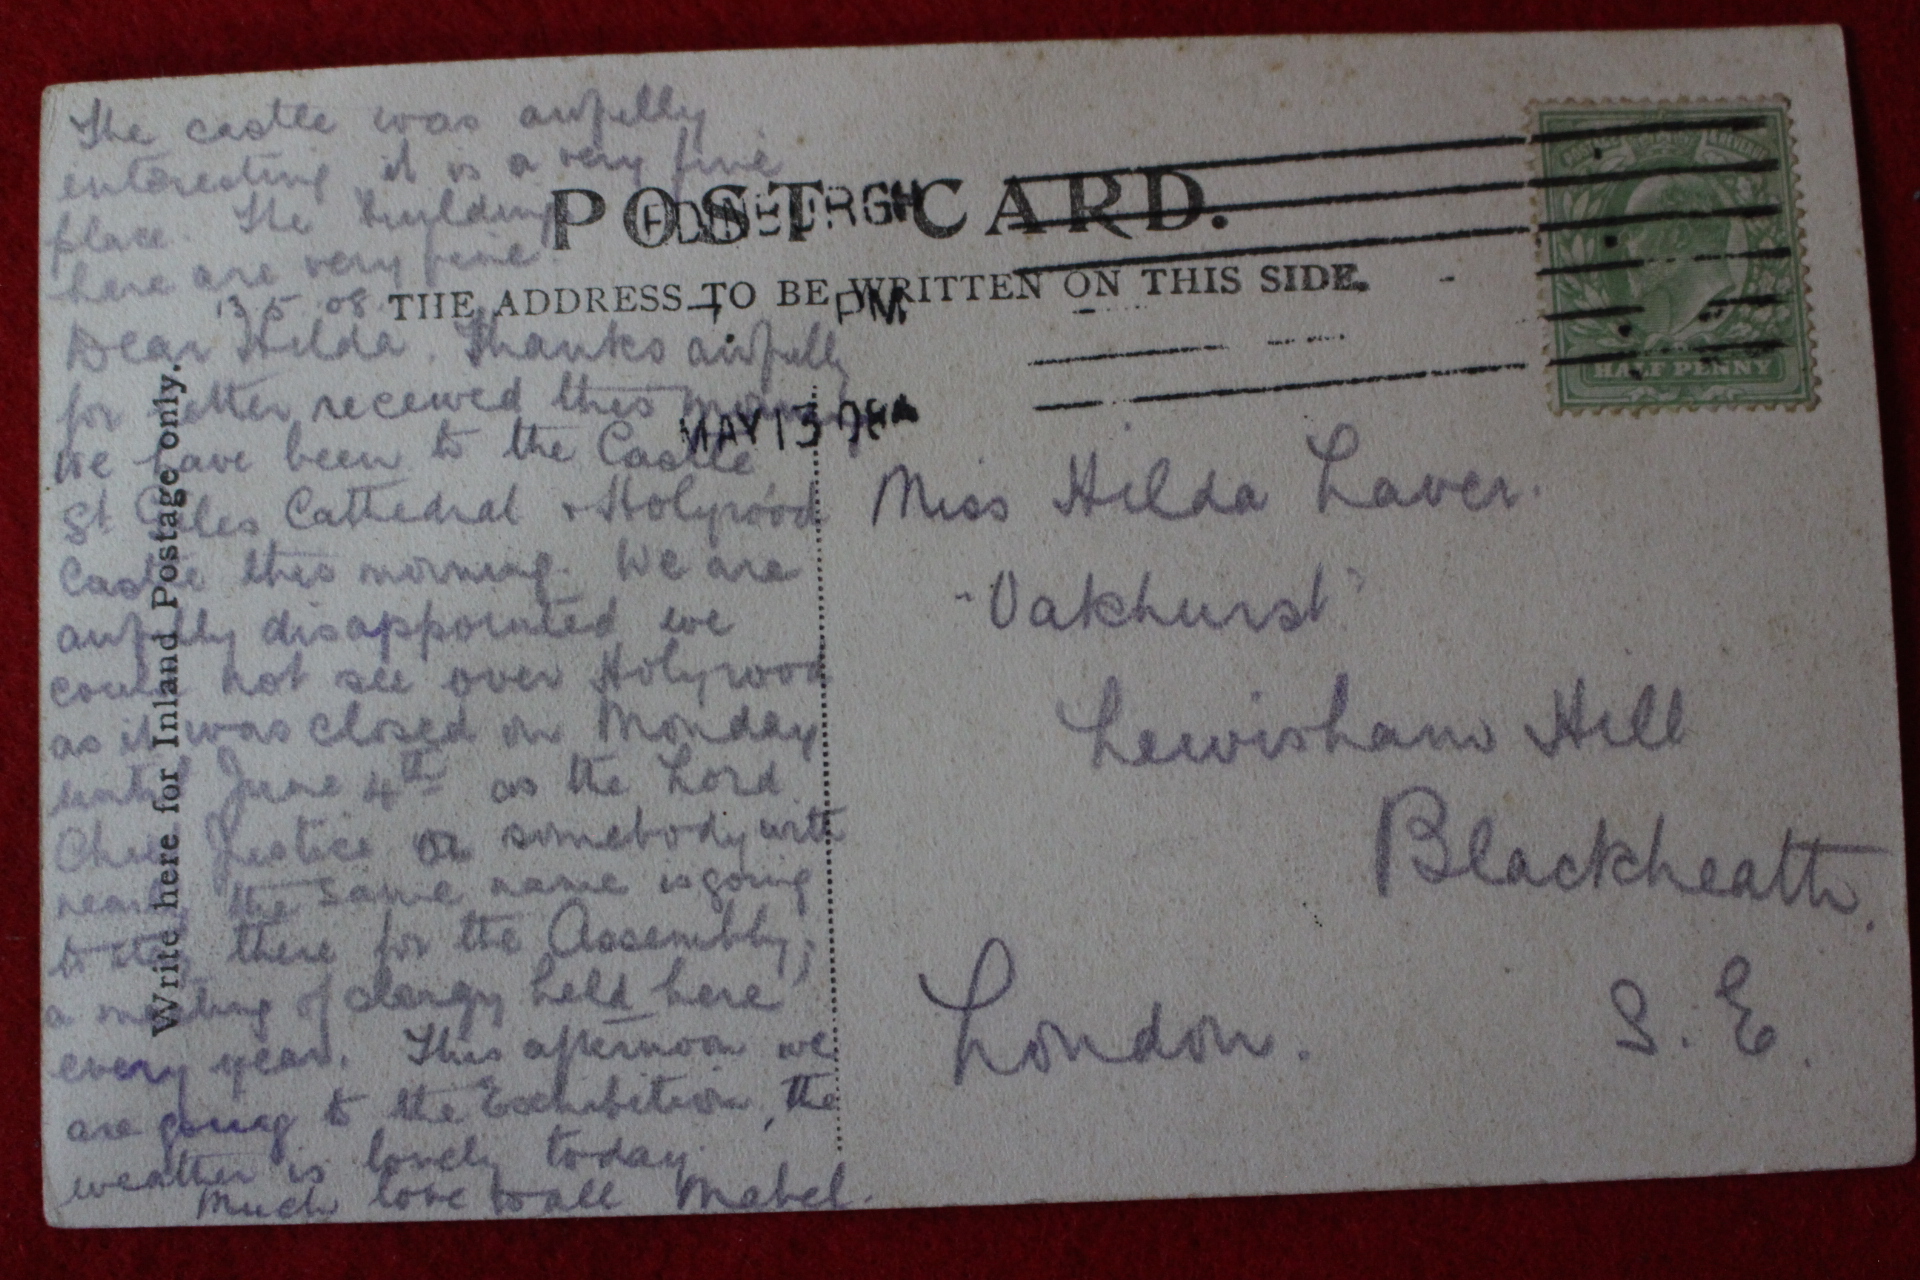 The castle was awfully
interesting it is a very fine
place. The buildings
here are very fine
13 5 08
Dear Hilda. Thanks awfully
for letter received this morning
We have been to the Castle,
St Giles Cattedral + Holyrood
Castle this morning. We are
awfully disappointed we
could not see over Holyrood
as it was closed on Monday
until June 4th as the Lord
Chief Justice or somebody with
nearly the same name is going
to stay there for the Assembly,
a meeting of clergy held here
every year. This afternoon we
are going to the Exhibition, the
weather is lovely today.
Much love to all Mabel.
POST CARD.
THE ADDRESS TO BE WRITTEN ON THIS SIDE.
Write here for Inland Postage only.
EDINBURGH
PM
MAY 13 08
HALF PENNY
Miss Hilda Laver.
"Oakhurst"
Lewisham Hill
Blackheath.
London. S.E.